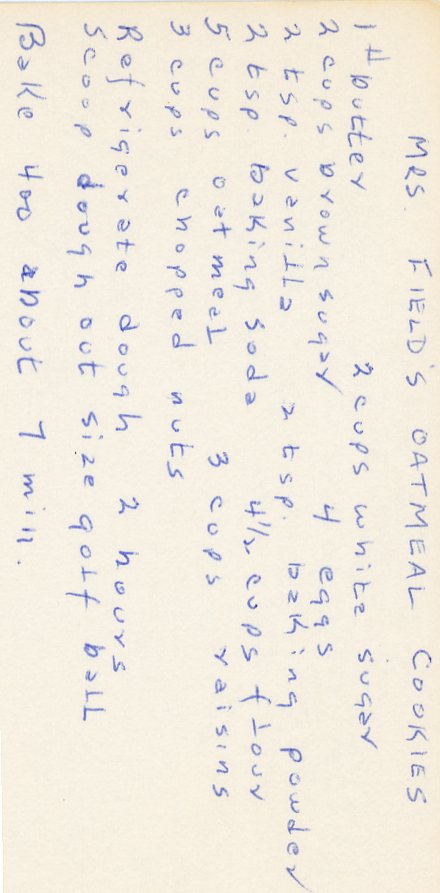 MRS. FIELD'S OATMEAL COOKIES
1# butter 2 cups white sugar
2 cups brown sugar 4 eggs
2 tsp. vanilla 2 tsp. baking powder
2 tsp. baking soda 4½ cups flour
5 cups oatmeal 3 cups raisins
3 cups chopped nuts
Refrigerate dough 2 hours
Scoop dough out size golf ball
Bake 400 about 7 min.